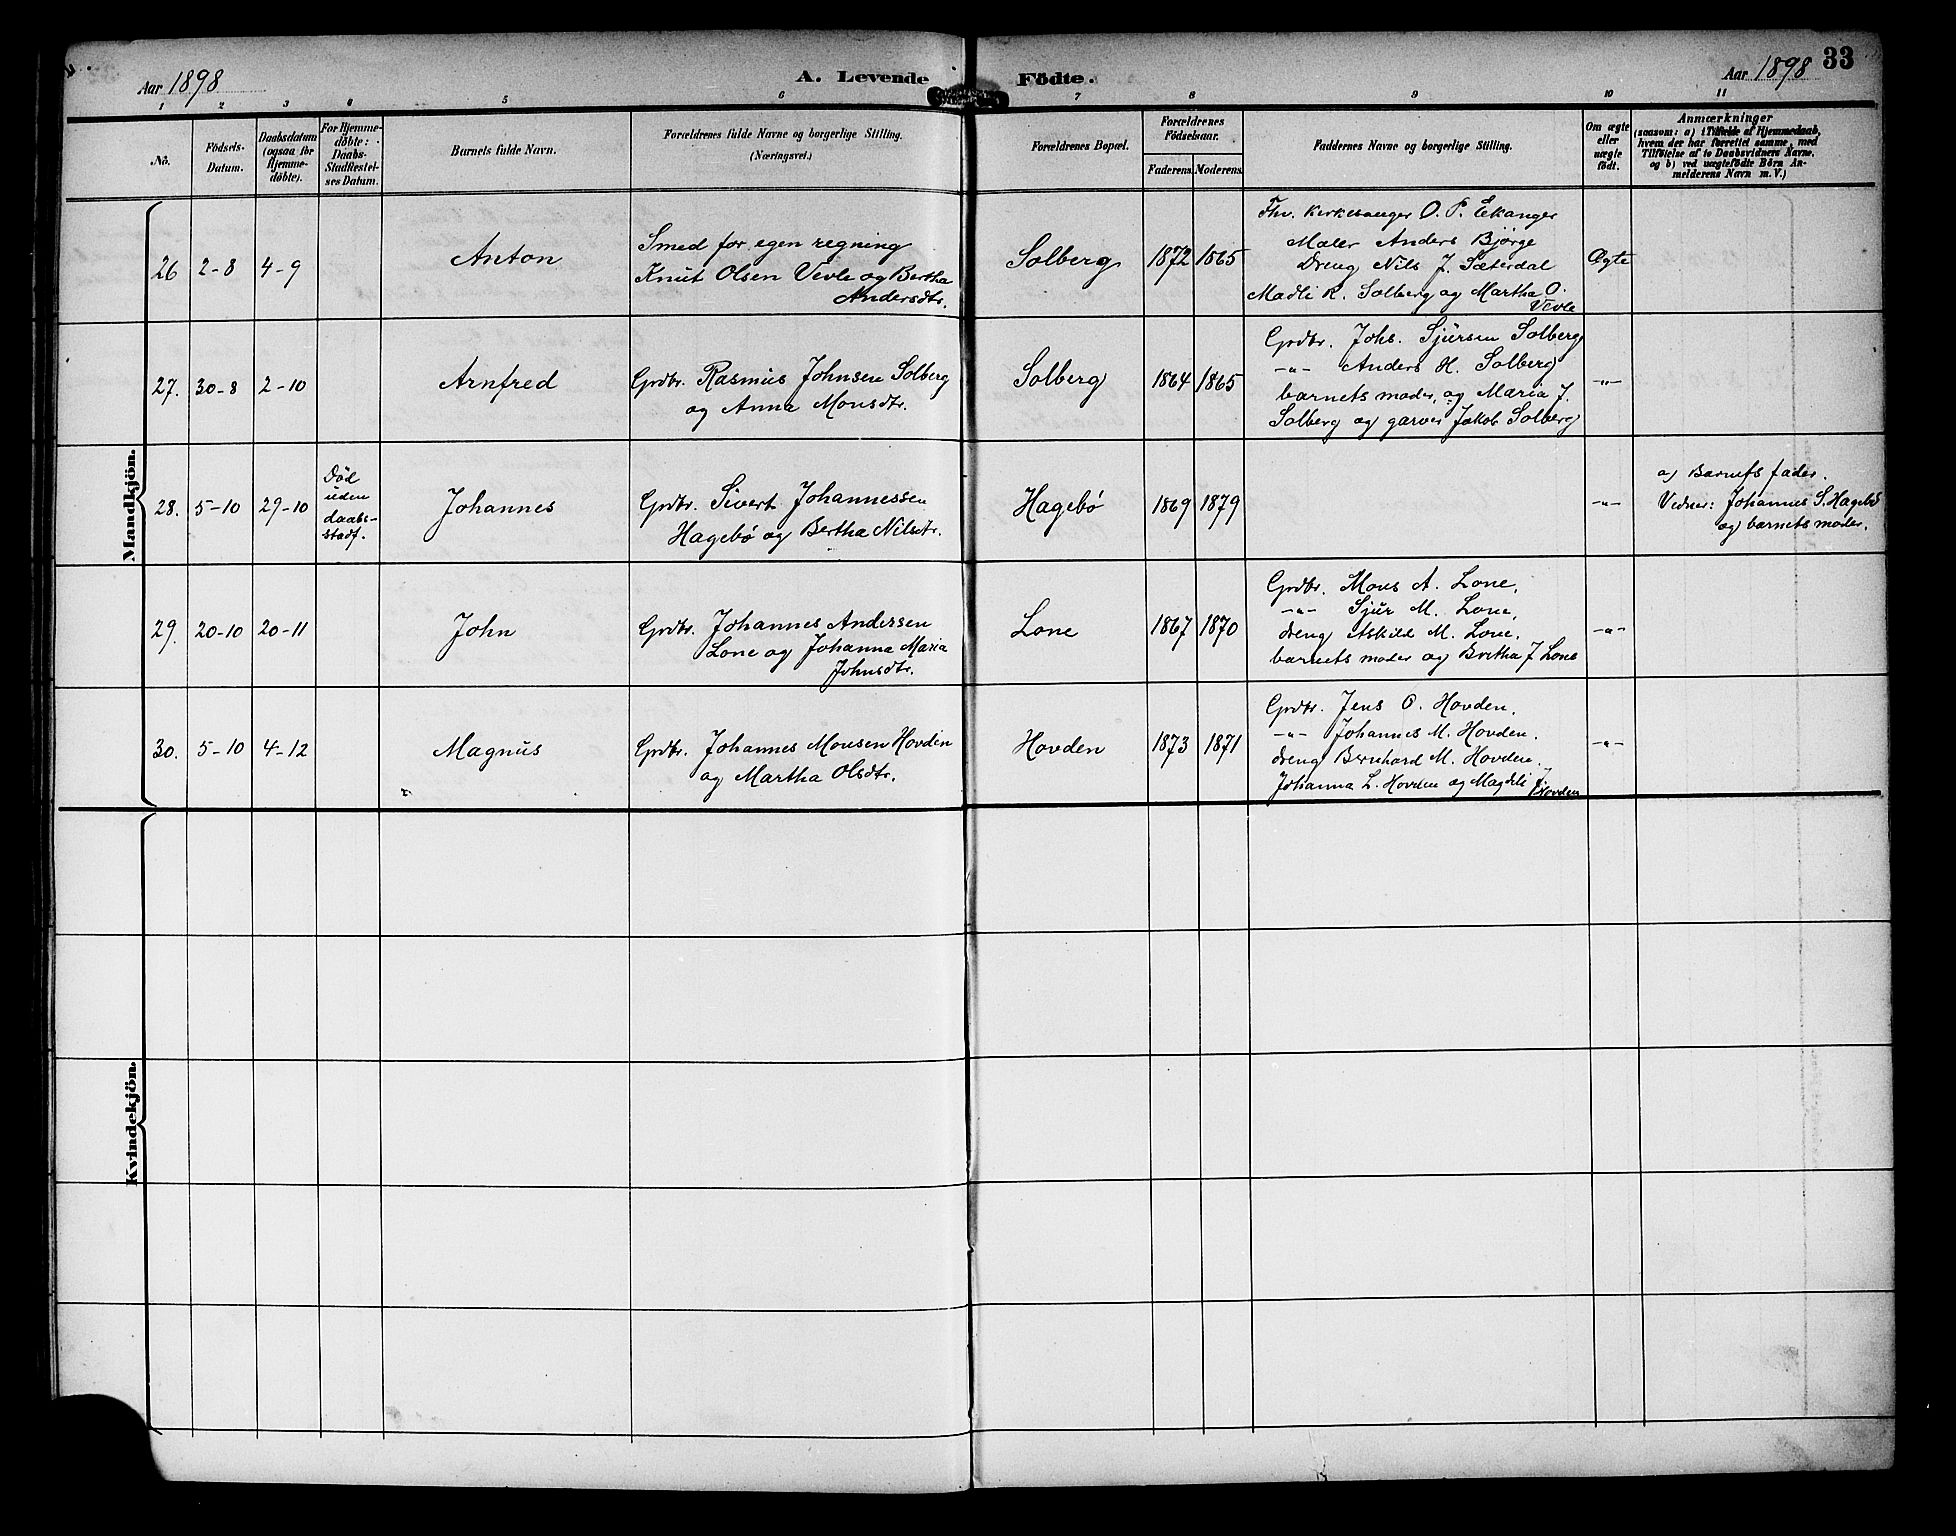 Aar 1898
A. Levende Födte.
Aar 1898 33
1 2 3 4 5 6 7 8 9 10 11
No.
Födsels-Datum.
Daabsdatum (ogsaa for Hjemme-døbte).
For Hjemme-døbte: Daabs-Stadfæstel-ses Datum.
Barnets fulde Navn.
Forældrenes fulde Navne og borgerlige Stilling.
(Næringsvei.)
Forældrenes Bopæl.
Forældrenes Fødselsaar.
Faderens. Moderens.
Faddernes Navne og borgerlige Stilling.
Om ægte eller uægte født.
Anmærkninger
(saasom: a) i Tilfælde af Hjemmedaab,
hvem der har forrettet samme, med
Tilføielse af to Daabsvidners Navne,
og b) ved uægtefødte Börn An-
melderens Navn m. V.)
Mandkjön.
26 2-8 4-9
Anton
Smed for egen regning
Knut Olsen Vevle og Bertha
Andersdtr.
Solberg
1872 1865
Fhv. Kirkesanger O. P. Ekanger
Maler Anders Bjørge
Dreng Nils J. Sæterdal
Madli R. Solberg og Martha O.
Vevle
Ægte
27. 30-8 2-10
Arnfred
Grdbr. Rasmus Johnsen Solberg
og Anna Monsdtr.
Solberg
1864 1865
Grdbr. Johs. Sjursen Solberg
-"- Anders H. Solberg
barnets moder, og Maria J.
Solberg og garver Jakob Solberg
-"-
28. 5-10 29-10
Død
uden
daabs-
stadf.
Johannes
Grdbr. Sivert Johannessen
Hagebø og Bertha Nilsdtr.
Hagebø
1869 1879
-"-
a) Barnets fader.
Vidner: Johannes S. Hagebø
og barnets moder.
29. 20-10 20-11
John
Grdbr. Johannes Andersen
Lone og Johanna Maria
Johnsdtr.
Lone
1867 1870
Grdbr. Mons A. Lone,
-"- Sjur M. Lone,
dreng Askild M. Lone,
barnets moder og Britha J Lone
-"-
30. 5-10 4-12
Magnus
Grdbr. Johannes Monsen Hovden
og Martha Olsdtr.
Hovden
1873 1871
Grdbr. Jens O. Hovden,
-"- Johannes M. Hovden.
dreng Bernhard M. Hovden.
Johanna L. Hovden og Magdeli J.
Hovden
-"-
Kvindekjön.